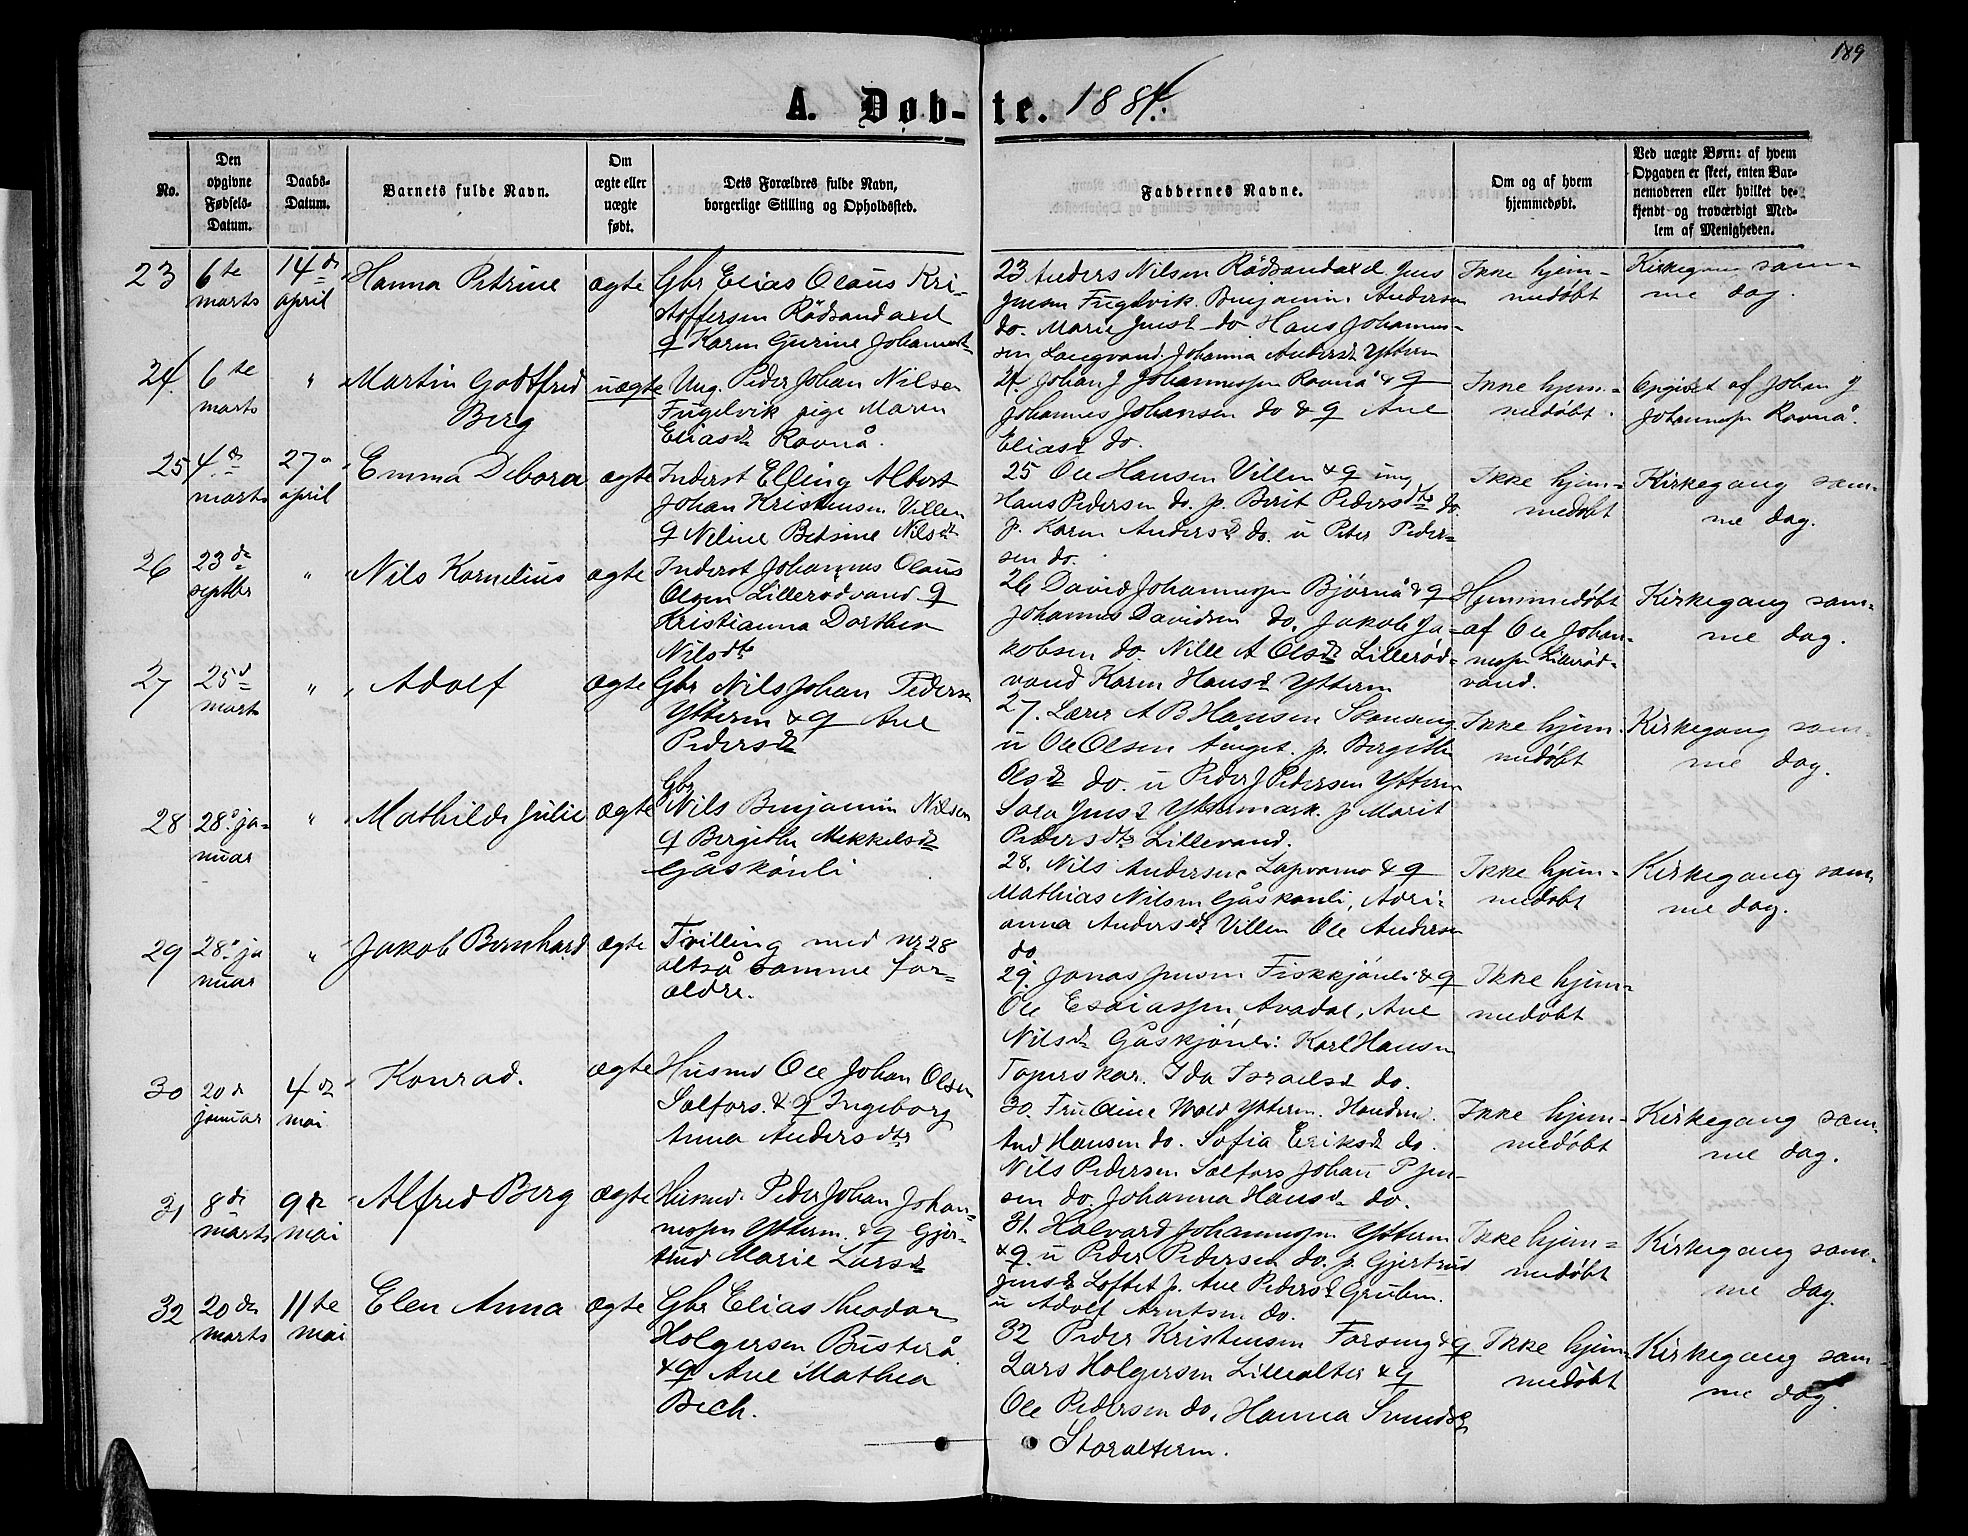 189
A. Døb- te. 1884.
No.
Den
opgivne
Fødsels-
Datum.
Daabs-
Datum.
Barnets fulde Navn.
Om
ægte eller
uægte
født.
Dets Forældres fulde Navn,
borgerlige Stilling og Opholdssted.
Faddernes Navne.
Om og af hvem
hjemmedøbt.
Ved uægte Børn: af hvem
Opgaven er skeet, enten Bar-
nemoderen eller hvilket be-
kjendt og troværdigt Med-
lem af Menigheden.
23
6te
marts
14de
april
Hanna Petrine
ægte
Gbr Elias Olaus Kri-
stoffersen Rödsandaxel
q Karen Gurine Johannesd
23 Anders Nilsen Rödsandaxel Jens
Jensen Fuglvik Benjamin Andersen
do. Marie Jensd do Hans Johannes-
sen Langvand. Johanna Andersd Yttern
Ikke hjem-
medøbt
Kirkegang sam-
me dag.
24
6te
marts
"
Martin Godtfred
Berg
uægte
Ung. Peder Johan Nilsen
Fugelvik pige Maren
Eliasd Ravnå.
24 Johan J Johannessen Ravnå & q
Johannes Johansen do & q Ane
Eliasd do.
Ikke hjem-
medøbt.
Opgivet af Johan J
Johannesen Ravnå.
25
4de
marts
27
april
Emma Debora
ægte
Inderst Elling Albert
Johan Kristensen Villen
q Neline Betsine Nilsd
25 Ole Hansen Villen & q ung
Hans Pedersen do. p. Berit Pedersdtr do.
p. Karen Andersd do. u Peter Peder-
sen do.
Ikke hjem-
medøbt
Kirkegang sam-
me dag.
26
23de
septbr
"
Nils Kornelius
ægte
Inderst Johannes Olaus
Olsen Lillerødvand q
Kristianna Dorthea
Nilsdtr
26 David Johannessen Bjørnå & q
Johannes Davidsen do. Jakob Ja-
kobsen do. Nille A Olsd Lillerød-
vand Karen Hansd Yttern
Hjemmedøbt
af Ole Johan-
nessen Lillerød-
vand.
Kirkegang sam-
me dag.
27
25d
marts
"
Adolf
ægte
Gbr Nils Johan Pedersen
Ytteren & q Ane
Pedersd
27. Lærer A B Hansen Skonseng
u Ole Olsen Ånget. p. Bergithe
Olsd do. u Peder J Pedersen Yttern
Sara Jensd Yttermark. p Marit
Pedersdtr Lillevand.
Ikke hjem-
medøbt
Kirkegang sam-
me dag.
28
28. ja-
nuar
"
Mathilde Julie
ægte
Gbr
Nils Benjamin Nilsen
q Bergithe Mekkelsd
Gåskönli
28. Nils Andersen Lapvamo & q
Mathias Nilsen Gåskönli, Adri-
anna Andersd Villen Ole Andersen
do
Ikke hjem-
medøbt
Kirkegang sam-
me dag.
29
28. ja
nuar
"
Jakob Bernhard
ægte
Tvilling med nr 28
altså samme for-
ældre.
29. Jonas Jensen Fiskkjönli & q
Ole Esaiassen Avadal, Ane
Nilsd Gåskjönli: Karl Hansen
Toperskar. Ida Israelsd do.
Ikke hjem-
medøbt
30
20d
januar
4de
mai
Konrad.
ægte
Husmd Ole Johan Olsen
Selfors. & q Ingeborg
Anna Andersdtr
30. Fru Oline Wold Yttern. Handesmd
And Hansen do. Sofia Eriksd do.
Nils Pedersen Selfors Johan P Jen-
sen do Johanna Hansd do.
Ikke hjem-
medøbt
Kirkegang sam-
me dag.
31
8de
marts
9de
mai
Alfred Berg
ægte
Husmd. Peder Johan Johan-
nessen Yttern. & q Gjer-
trud Marie Larsd
31. Halvard Johannessen Yttern
& q. u Peder Pedersen do. p. Gjertrud
Jensd Loftet p. Ane Pedersd Gruben.
u Adolf Arntsen do.
Ikke hjem-
medøbt
Kirkegang sam-
me dag.
32
20de
marts
11te
mai
Elen Anna
ægte
Gbr Elias Theodor
Holgersen Busterå
& q Ane Mathea
Bech.
32 Peder Kristensen Forseng & q
Lars Holgersen Lillealter & q
Ole Pedersen do, Hanna Svendsd
Storalteren.
Ikke hjem-
medøbt
Kirkegang sam-
me dag.